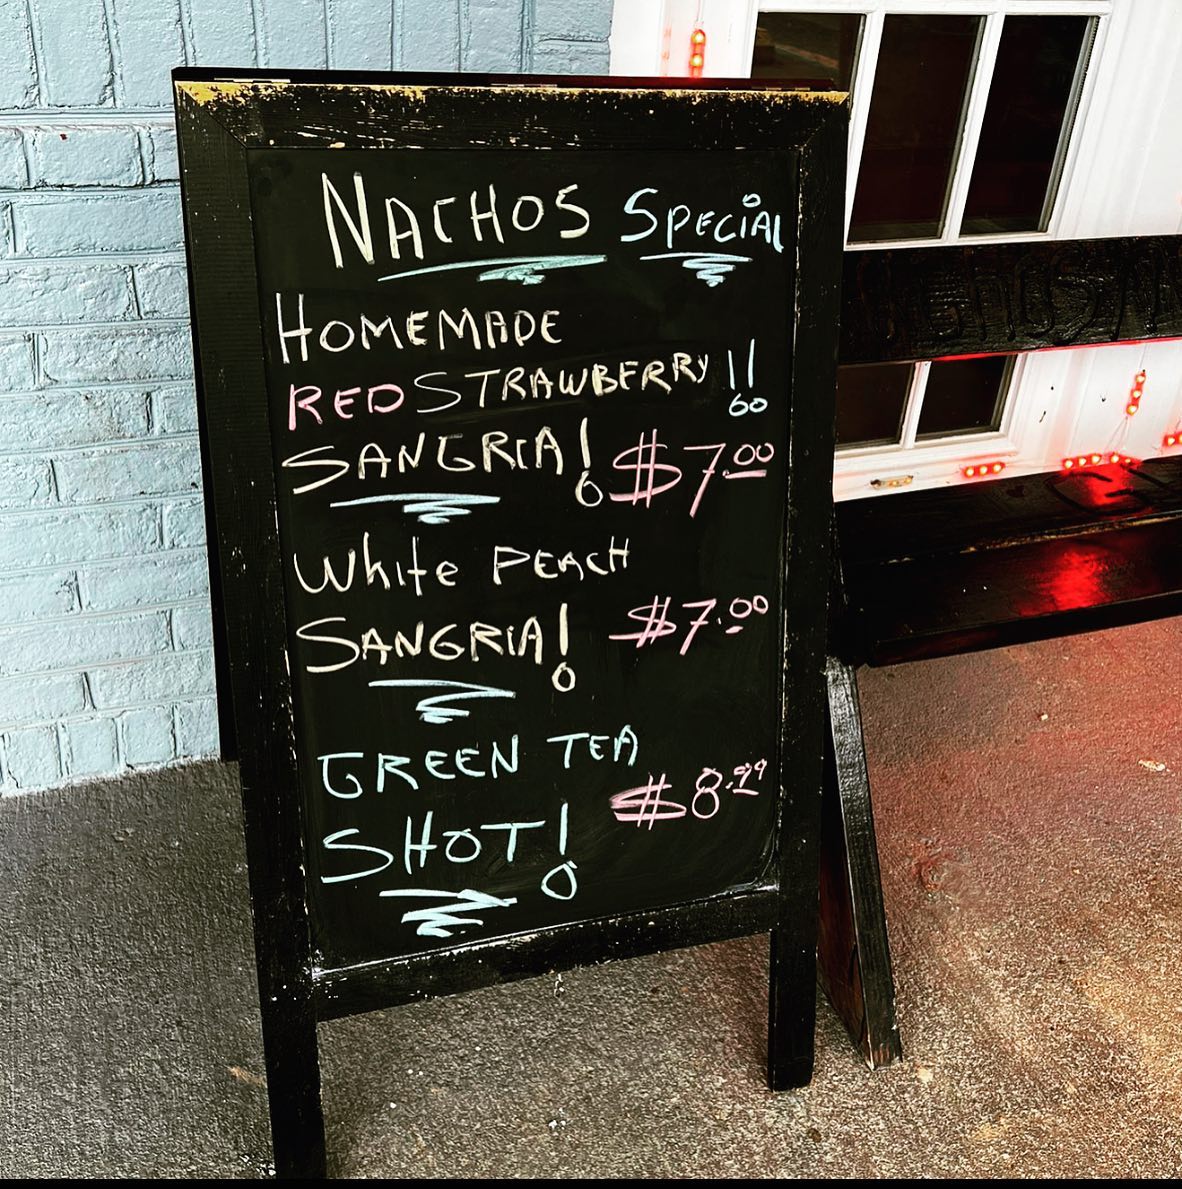 NACHOS SPECIAL
HOMEMADE
RED STRAWBERRY !!
SANGRIA! $7.00
White PEACH
SANGRIA! $7.00
GREEN TEA
SHOT! $8.99